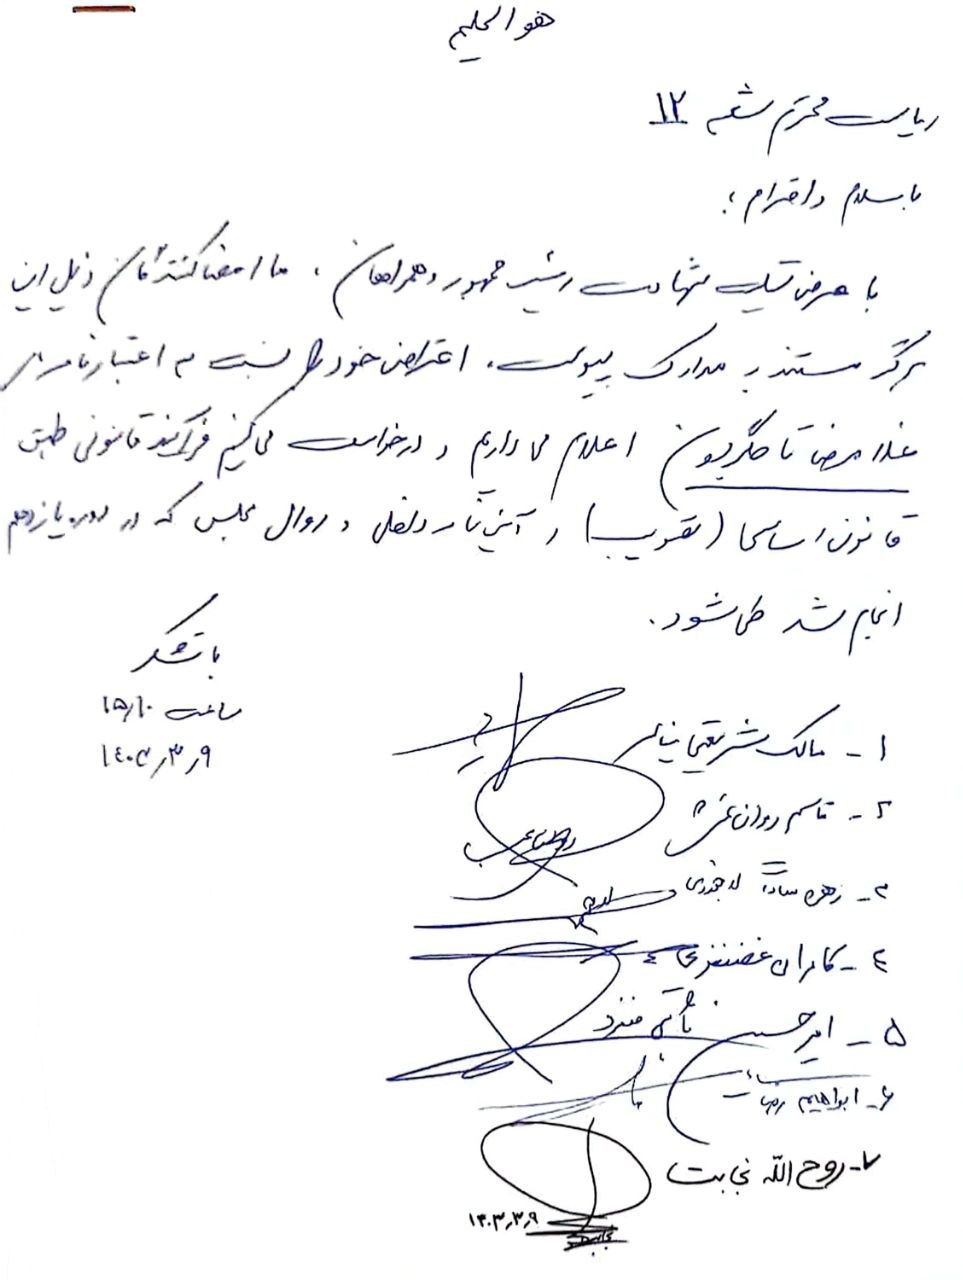 هو الحلیم
ریاست محترم شعبه ۱۲
با سلام و احترام؛
با عرض تسلیت شهادت رئیس جمهور و همراهان، ما امضا کنندگان ذیل این
برگه مستند به مدارک پیوست، اعتراض خود را نسبت به اعتبارنامه
غلامرضا تاجگردون اعلام می داریم و درخواست می کنیم فرآیند قانونی طبق
قانون اساسی (تصویب) و آئین نامه داخلی و روال مجلس که در دوره یازدهم
انجام شد طی شود.
با تشکر
ساعت ۱۵/۱۰
۱۴۰۳/۳/۹
۱- مالک شریعتی نیاسر
۲- قاسم روان بخش
۳- زهره سادات لاجوردی
۴- کامران غضنفری
۵- امیر حسین ثابتی منفرد
۶- ابراهیم رضائی
۷- روح الله نجابت
۱۴۰۳/۳/۹